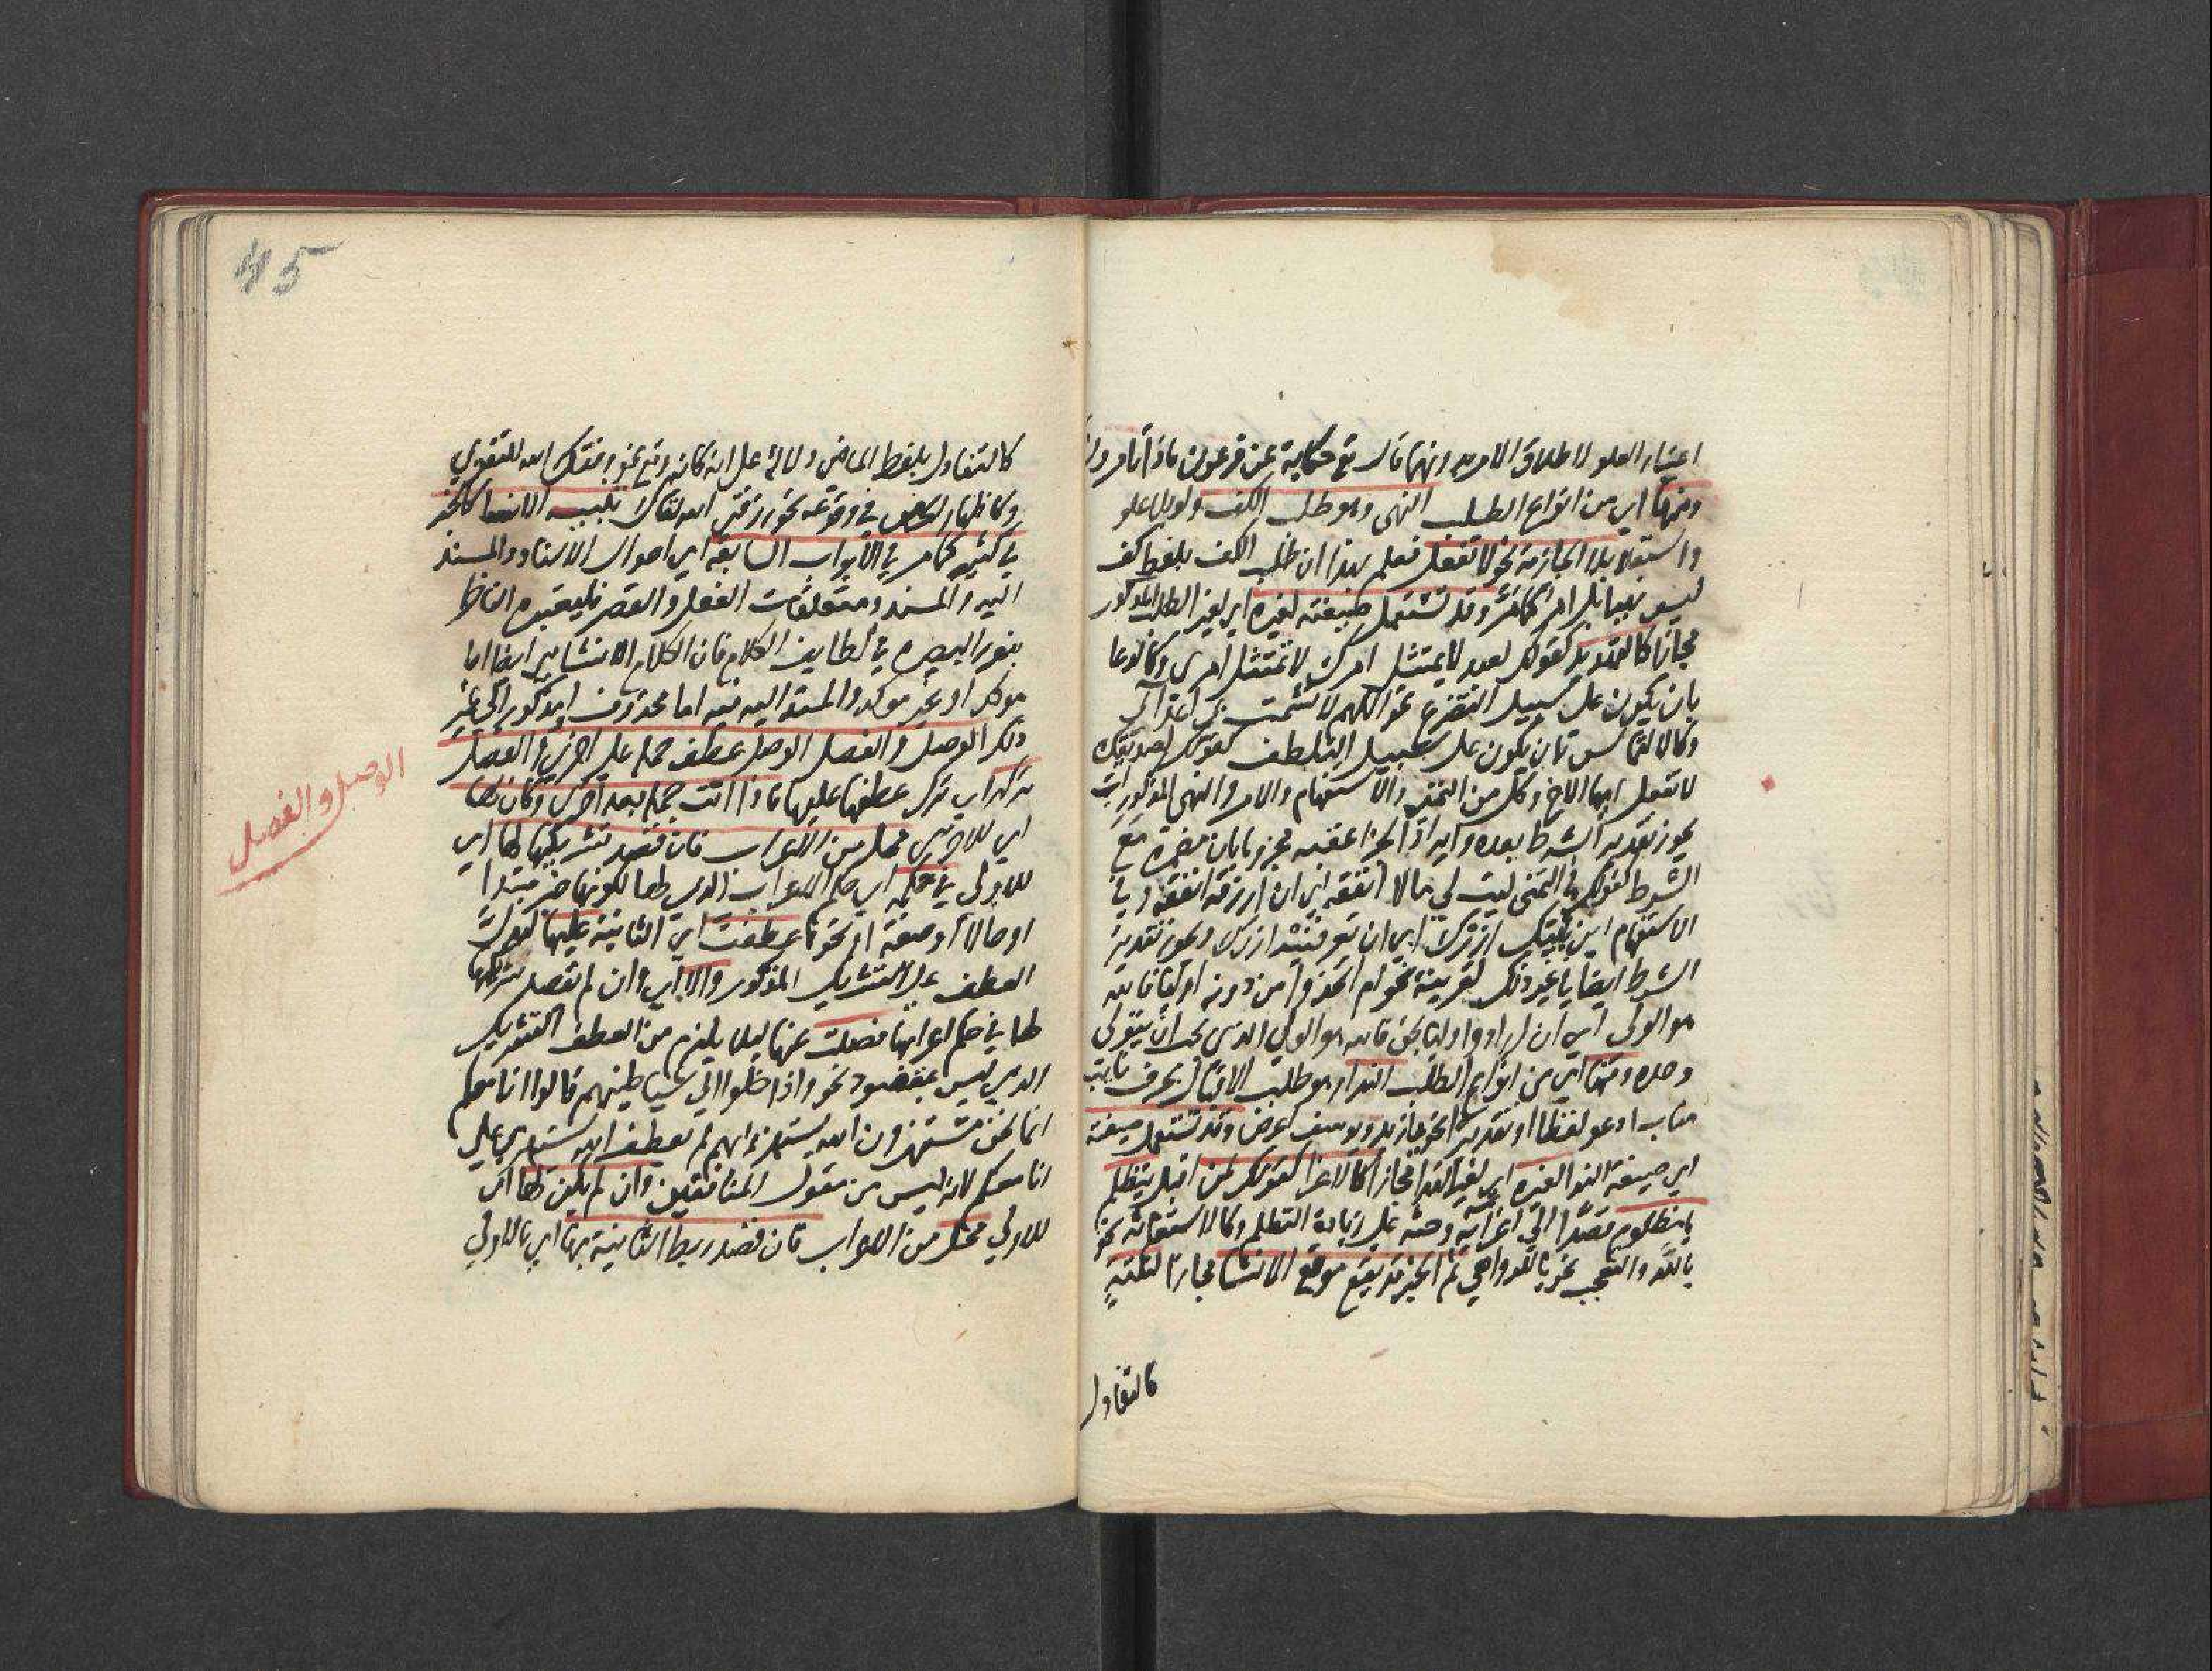 اعتبار العلو لاطلاق الامر بدونهما قال تع حكاية عن فرعون ماذا تامرون
ومنها اي من انواع الطلب النهي وهو طلب الكف ولو بلا علو
واستعلا بلا الجازمة نحو لا تفعل فعلم بهذا ان طلب الكف بلفظ كف
ليس نهيا بل امر كما مر وقد تستعمل صيغته لغيره اي لغير الطلب المذكور
مجازا كالتهديد كقولك لعبد لا يمتثل امرك لا تمتثل امري وكالدعا
بان يكون على سبيل التضرع نحو اللهم لا تشمت بي اعدائي
وكالالتماس بان يكون على سبيل التلطف كقولك لصديقك
لا تفعل ايها الاخ وكل من التمني والاستفهام والامر والنهي المذكورات
يجوز تقدير الشرط بعده وايراد الجزا عقبه مجزوما بان مضمرة مع
الشرط كقولك في التمني ليت لي مالا انفقه اي ان ارزقه انفقه وفي
الاستفهام اين بيتك ازرك اي ان تعرفنيه ازرك ويجوز تقدير
الشرط ايضا في غير ذلك لقرينة نحو ام اتخذوا من دونه اوليا فالله
هو الولي اي ان ارادوا وليا بحق فالله هو الولي الذي يجب ان يتولى
وحده ومنها اي من انواع الطلب الندا وهو طلب الاقبال بحرف نايب
مناب ادعو لفظا او تقديرا نحو يا زيد ويوسف اعرض وقد تستعمل صيغته
اي صيغة الندا لغيره اي لغير الندا مجازا كالاغرا كقولك لمن اقبل يتظلم
يا مظلوم قصدا الى اغرايه وحثه على زيادة التظلم وكالاستغاثة نحو
يا لله والتعجب نحو يا للدواهي ثم الخبر قد يقع موقع الانشا مجازا لنكتة
كالتفاول
كالتفاول بلفظ الماضي دلالة على انه كانه وقع نحو وفقك الله للتقوى
وكاظهار الحرص في وقوعه نحو رزقني الله لقاك تنبيه الانشا كالخبر
في كثير مما مر في الابواب السابقة اي احوال الاسناد والمسند
اليه والمسند ومتعلقات الفعل والقصر فليعتبره الناظر
بنور البصيرة في لطايف الكلام فان الكلام الانشاي ايضا اما
موكد او غير موكد والمسند اليه فيه اما محذوف او مذكور الى غير
ذلك الوصل والفصل الوصل عطف جملة على اخرى والفصل
تركه اي ترك عطفها عليها فاذا اتت جملة بعد اخرى وكان لها
اي للاخرى محل من الاعراب فان قصد تشريكها لها اي
للاولى في حكمه اي حكم الاعراب الذي لها لكونها خبر مبتدا
او حالا او صفة او نحوها عطفت اي الثانية عليها ليدل
العطف على التشريك المذكور والا اي وان لم يقصد تشريكها
لها في حكم اعرابها فصلت عنها ليلا يلزم من العطف التشريك
الذي ليس بمقصود نحو واذا خلوا الى شياطينهم قالوا انا معكم
انما نحن مستهزون الله يستهزئ بهم لم يعطف الله يستهزي على
انا معكم لانه ليس من مقول المنافقين وان لم يكن لها اي
للاولى محل من الاعراب فان قصد ربط الثانية بها اي بالاولى
الوصل والفصل
45